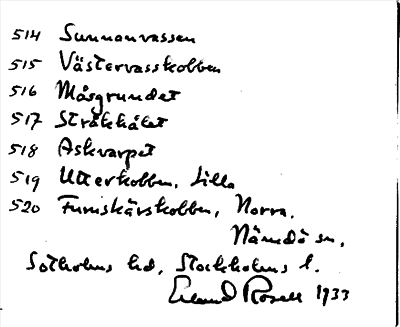 514 Sunnanvassen
515 Västervasskobben
516 Måsgrundet
517 Stråkhålet
518 Askvarpet
519 Utterkobben, Lilla
520 Furuskärskobben, Norra,
Nämdö sn,
Sotholms hd, Stockholms l.
Erland Rosell 1933